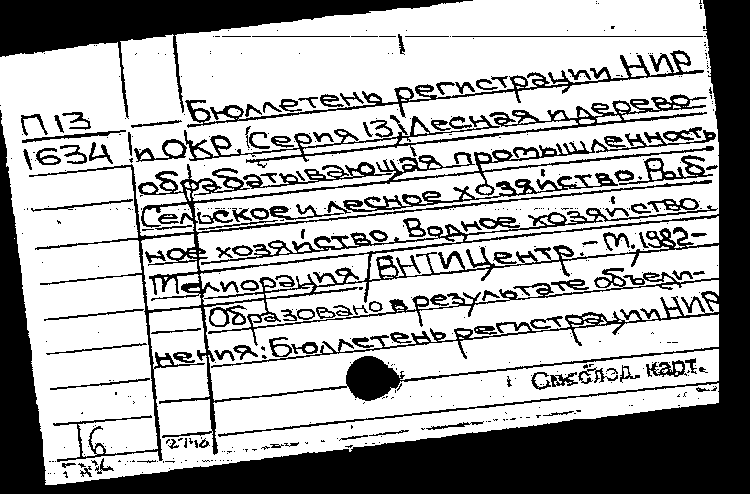 Бюллетень регистрации НИР
П 13
1634
и ОКР. (Серия 13) Лесная и дерево-
обрабатывающая промышленность
Сельское и лесное хозяйство. Рыб-
ное хозяйство. Водное хозяйство.
Мелиорация / ВНТИЦентр. - М, 1982-
Образовано в результате объеди-
нения: Бюллетень регистрации НИР
См. след. карт.
16
2740